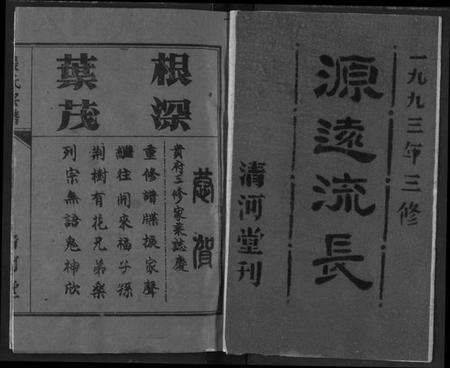 一九九三年三修
源遠流長
清河堂刊
根深
葉茂
恭賀
貴府三修家乗誌慶
重修譜牒振家聲
繼往開來福子孫
荆樹有花兄弟樂
列宗無語鬼神欣
氏宗譜
清河堂